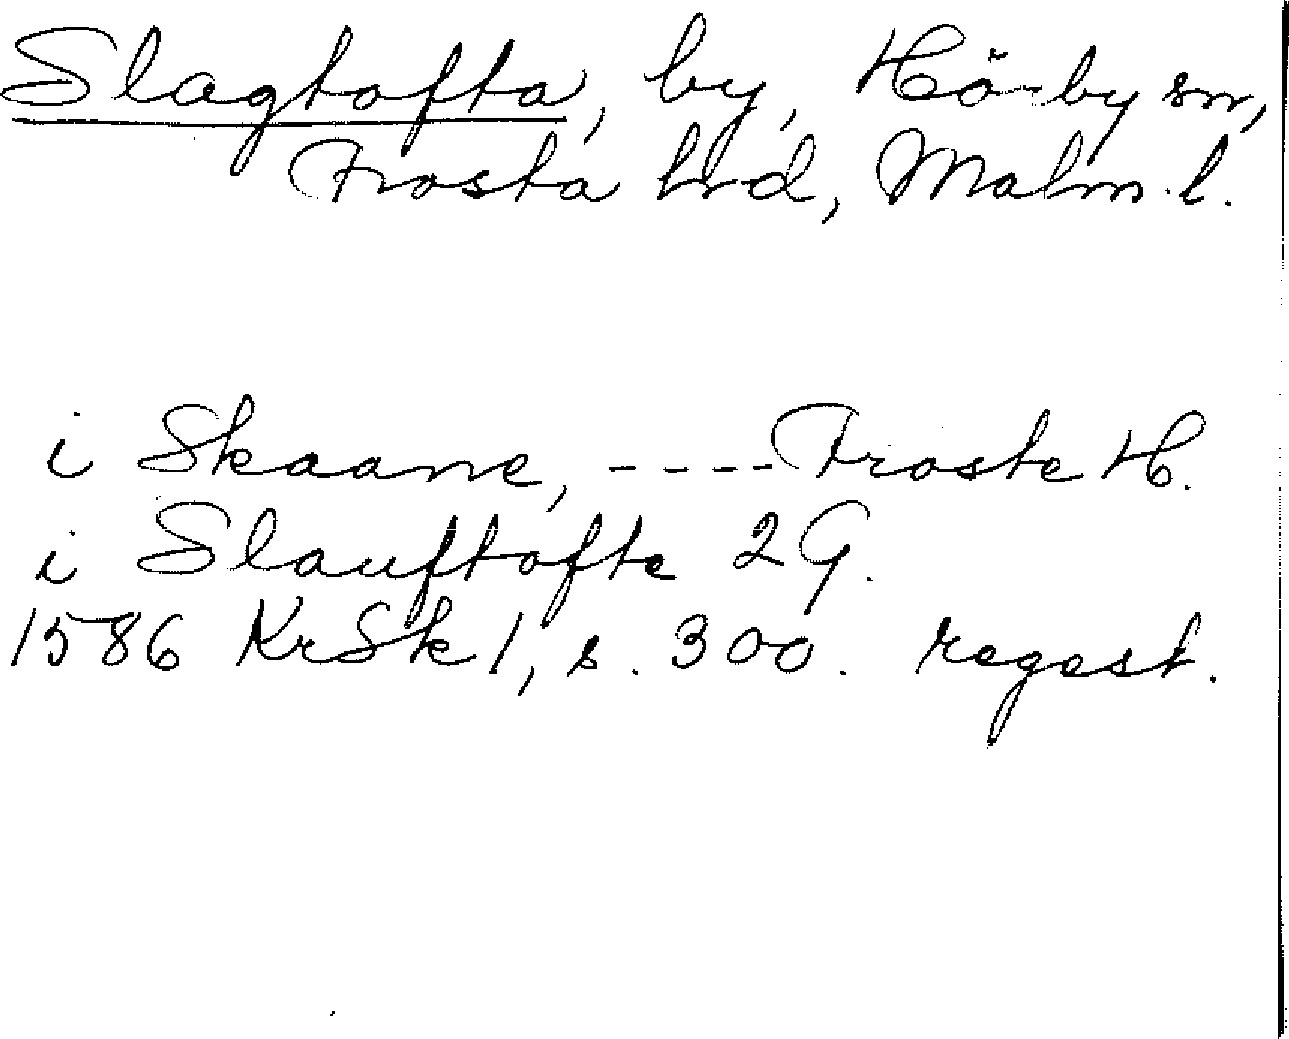 Slagtofta, by, Hörby sn,
Frosta hrd, Malm. l.
i Skaane, ---- Froste H.
i Slauftofte 2 G.
1586 KrSk 1, s. 300. regest.